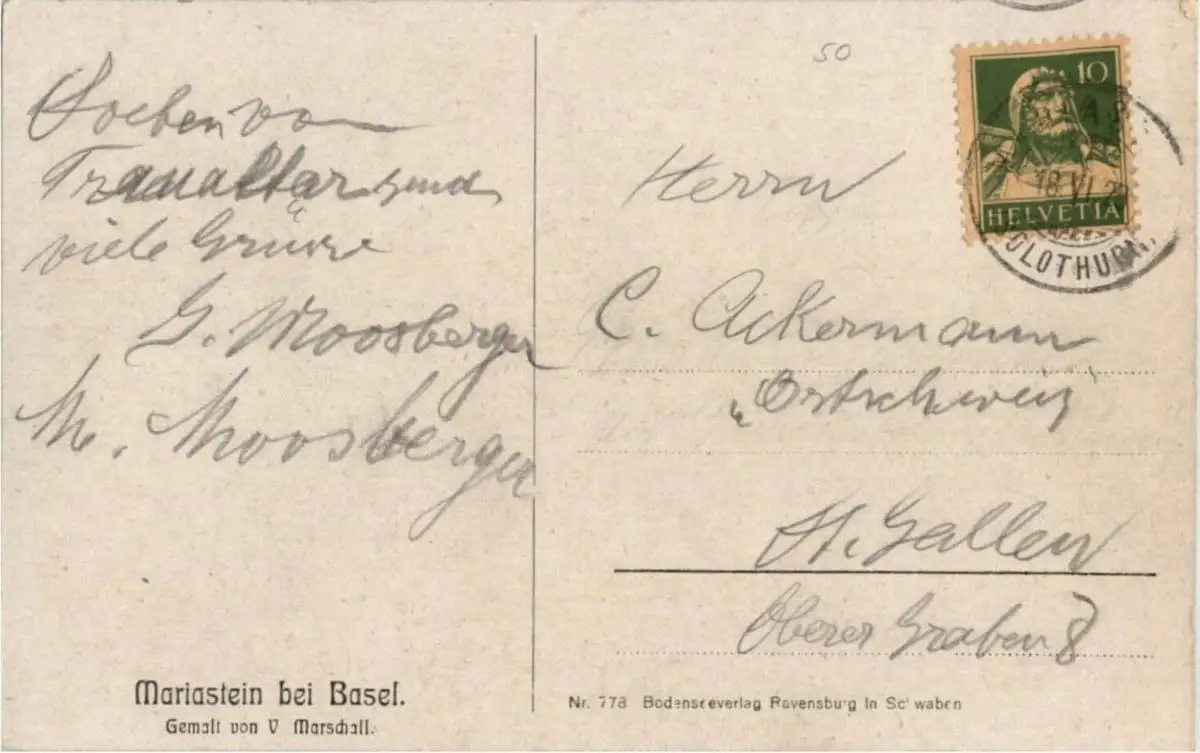 Soeben vom
Traualtar send
viele Grüsse
G. Moosberger
M. Moosberger
Mariastein bei Basel.
Gemalt von V Marschall.
50
10
HELVETIA
18.VI.
SOLOTHURN.
Herrn
C. Ackermann
„Ostschweiz"
St. Gallen
Oberer Graben 8
Nr. 778 Bodenseeverlag Ravensburg in Schwaben